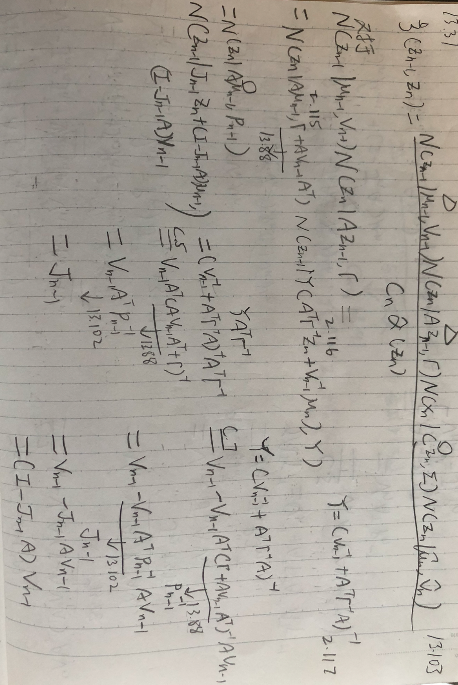 13.31
ξ(Zn-1, Zn) = N(Zn-1|μn-1, Vn-1) N(Zn|AZn-1, Γ) N(xn|CZn, Σ) N(Zn|μ̂n, V̂n) 13.103
Cn α̂(Zn)
对于
N(Zn-1|μn-1, Vn-1) N(Zn|AZn-1, Γ) =
Y = (Vn-1⁻¹ + AᵀΓ⁻¹A)⁻¹ 2.117
2.115 2.116
= N(Zn|Aμn-1, Γ + AVn-1Aᵀ) N(Zn-1|Y(AᵀΓ⁻¹Zn + Vn-1⁻¹μn), Y)
13.88
= N(Zn|Aμn-1, Pn-1)
N(Zn-1|Jn-1Zn + (I-Jn-1A)μn-1,
(I-Jn-1A)Vn-1)
YAᵀΓ⁻¹
= (Vn-1⁻¹ + AᵀΓ⁻¹A)⁻¹AᵀΓ⁻¹
C.5
= Vn-1Aᵀ(AVn-1Aᵀ + Γ)⁻¹
↓13.88
= Vn-1AᵀPn-1⁻¹
↓13.102
= Jn-1
Y = (Vn-1⁻¹ + AᵀΓ⁻¹A)⁻¹
C.7
= Vn-1 - Vn-1Aᵀ(Γ + AVn-1Aᵀ)⁻¹AVn-1
↓13.88
Pn-1⁻¹
= Vn-1 - Vn-1AᵀPn-1⁻¹AVn-1
↓13.102
Jn-1
= Vn-1 - Jn-1AVn-1
= (I-Jn-1A)Vn-1